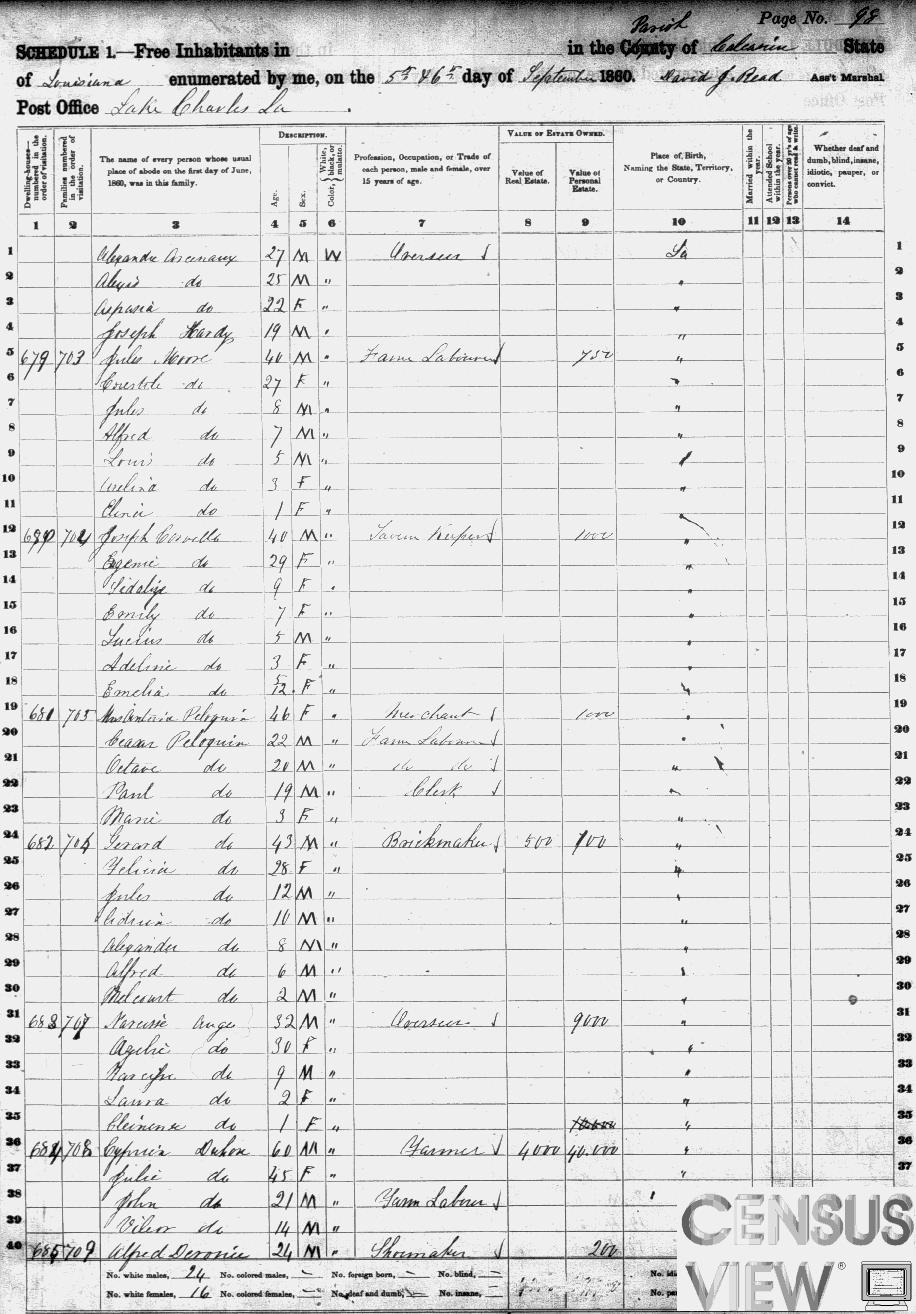 Page No. 98
SCHEDULE 1.—Free Inhabitants in in the County Parish of Calcasieu State
of Louisiana enumerated by me, on the 5th & 6th day of September 1860. David J. Read Ass't Marshal
Post Office Lake Charles La.
Dwelling-houses—numbered in the order of visitation.
Families numbered in the order of visitation.
The name of every person whose usual place of abode on the first day of June, 1860, was in this family.
DESCRIPTION.
Age.
Sex.
Color, White, black, or mulatto.
Profession, Occupation, or Trade of each person, male and female, over 15 years of age.
VALUE OF ESTATE OWNED.
Value of Real Estate.
Value of Personal Estate.
Place of Birth, Naming the State, Territory, or Country.
Married within the year.
Attended School within the year.
Persons over 20 y'rs of age who cannot read & write.
Whether deaf and dumb, blind, insane, idiotic, pauper, or convict.
1 2 3 4 5 6 7 8 9 10 11 12 13 14
1 Alexandre Arcenaux 27 M W Overseer La 1
2 Alexis do 25 M " " 2
3 Aspasia do 22 F " " 3
4 Joseph Hardy 19 M " " 4
5 679 703 Jules Moore 40 M " Farm Labourer 750 " 5
6 do 27 F " " 6
7 Jules do 8 M " " 7
8 Alfred do 7 M " " 8
9 Louis do 5 M " " 9
10 do 3 F " " 10
11 do 1 F " " 11
12 680 704 Joseph 40 M " Tavern Keeper 1000 " 12
13 Eugenie do 29 F " " 13
14 Sidalize do 9 F " " 14
15 Emily do 7 F " " 15
16 Lucius do 5 M " " 16
17 Adeline do 3 F " " 17
18 Emelia do 5/12 F " " 18
19 681 705 Mrs Antonia Peloquin 46 F " Merchant 1000 " 19
20 Ceasar Peloquin 22 M " Farm Labourer " 20
21 Octave do 20 M " do do " 21
22 Paul do 19 M " Clerk " 22
23 Marie do 3 F " " 23
24 682 706 Gerard do 43 M " Brickmaker 500 100 " 24
25 Felicia do 28 F " " 25
26 Jules do 12 M " " 26
27 Adrien do 10 M " " 27
28 Alexander do 8 M " " 28
29 Alfred do 6 M " " 29
30 Belcourt do 2 M " " 30
31 683 707 Narcisse Auge 32 M " Overseer 9000 " 31
32 Azelie do 30 F " " 32
33 Narcisse do 9 M " " 33
34 Laura do 2 F " " 34
35 do 1 F " " 35
36 684 708 Cyprien Duhon 60 M " Farmer 4000 40.000 " 36
37 Julie do 45 F " " 37
38 John do 21 M " Farm Labour
39 do 14 M "
40 685 709 Alfred 24 M " Shoemaker 200
No. white males, 24 No. colored males, — No. foreign born, — No. blind, —
No. white females, 16 No. colored females, — No. deaf and dumb, — No. insane, —
CENSUS
VIEW®